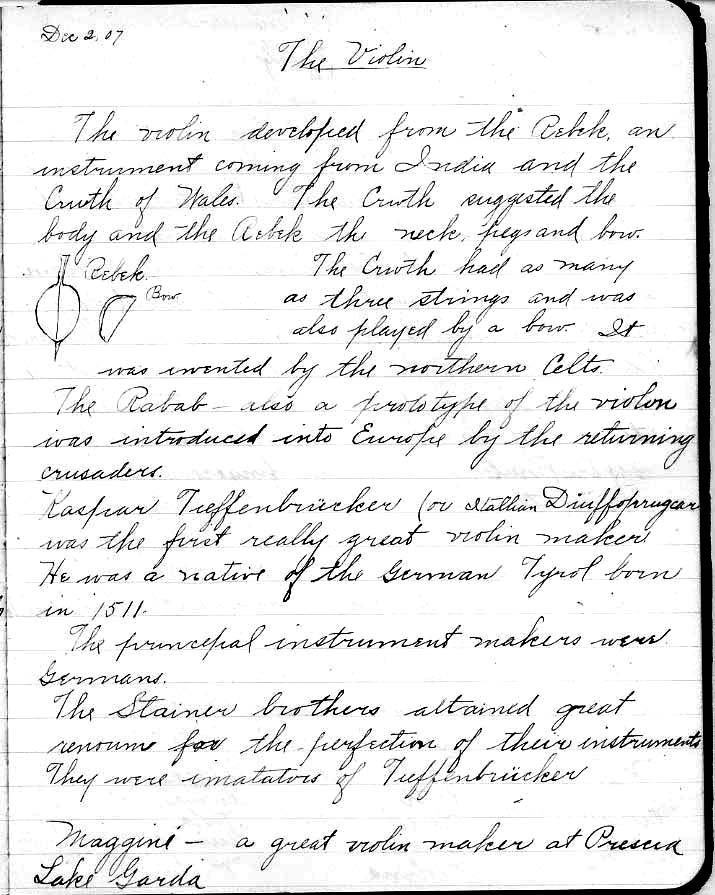 Dec 2, 07
The Violin
The violin developed from the Rebek, an
instrument coming from India and the
Cruth of Wales. The Cruth suggested the
body and the Rebek the neck, pegs and bow.
Rebek. The Cruth had as many
Bow as three strings and was
also played by a bow. It
was invented by the northern Celts.
The Rabab - also a prototype of the violin
was introduced into Europe by the returning
crusaders.
Kaspar Tieffenbrücker (or Itallian Diuffoprugcar
was the first really great violin maker
He was a native of the German Tyrol born
in 1511.
The principal instrument makers were
Germans.
The Stainer brothers attained great
renoum for the perfection of their instruments
They were imatators of Tieffenbrücker
Maggini - a great violin maker at Prescia
Lake Garda